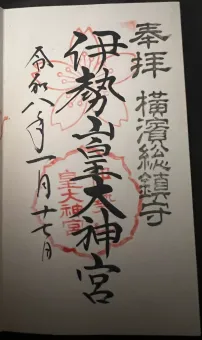 奉拝 横濱総鎮守
伊勢山皇大神宮
令和八年一月十七日
皇大神宮